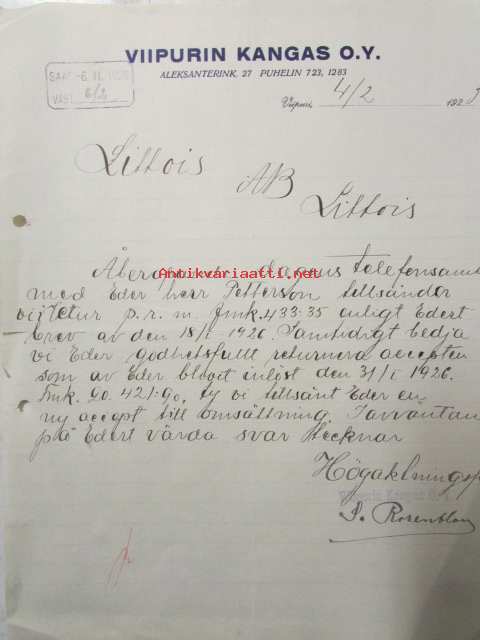 VIIPURIN KANGAS O.Y.
ALEKSANTERINK. 27 PUHELIN 723, 1283
SAAP. -6. II. 1926
VAST. 6/2
Viipuri 4/2 192
Littois AB
Littois
dagens telefonsamt
med Eder herr Petterson tillsänder
vi retur p.r.m. Fmk. 433:35 enligt Edert
brev av den 18/I 1926. Samtidigt bedja
vi Eder godhetsfullt returnera accepten
som av Eder blivit inlöst den 31/I 1926.
Fmk. 421:90, ty vi tillsänt Eder en
ny accept till omsättning. I avvantan
på Edert värda svar tecknar
Högaktningsf
Viipurin Kangas O.Y.
Rosenblom
Antikvariaatti.net